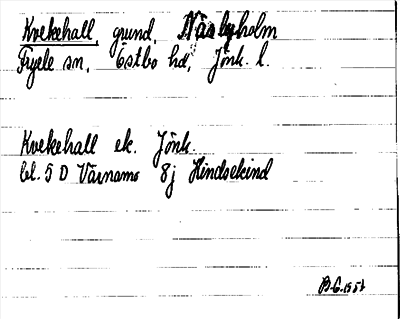 Kvekehall, grund, Näsbyholm
Fryele sn, Östbo hd, Jönk. l.
Kvekehall ek. Jönk.
bl. 5 D Värnamo 8j Hindsekind